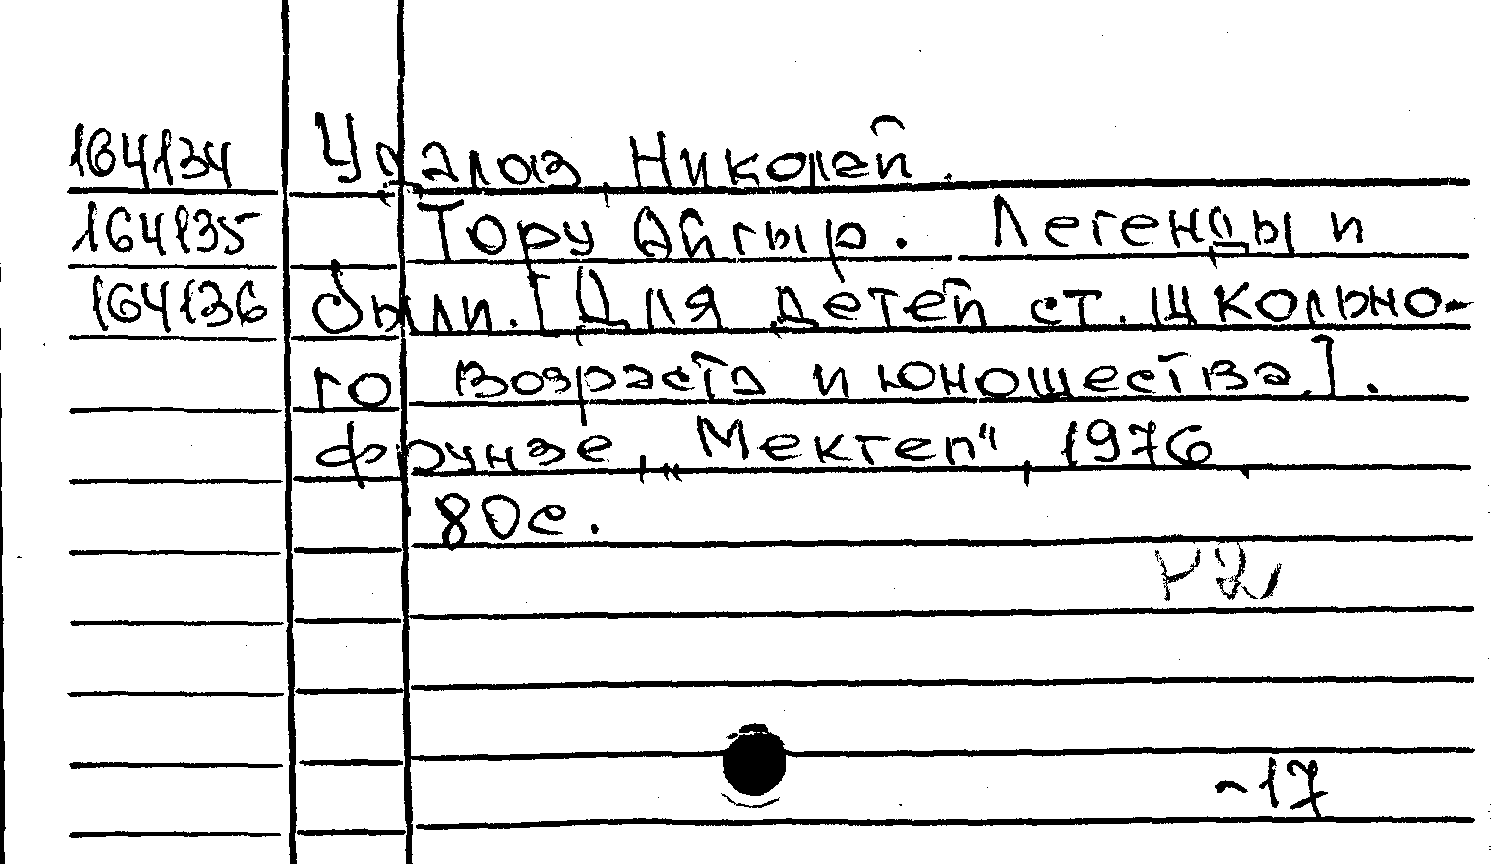 164134 Удалов, Николай.
164135 Тору Айгыр. Легенды и
164136 были. [Для детей ст. школьно-
го возраста и юношества].
Фрунзе, „Мектеп", 1976.
80с.
Р2
-17